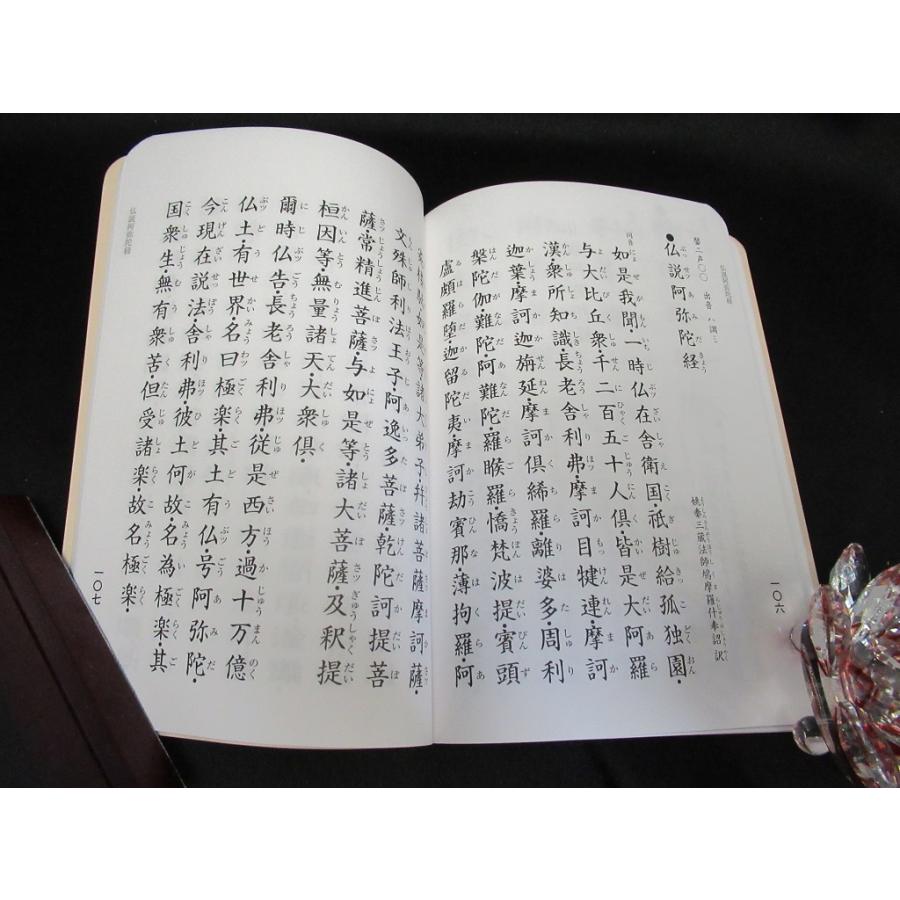 仏説阿弥陀経
磬二声〇〇 出音 ハ調ミ
●仏説阿弥陀経
姚秦三蔵法師鳩摩羅什奉詔訳
同音
如是我聞一時仏在舎衛国・祇樹給孤独園・
与大比丘衆千二百五十人倶皆是大阿羅
漢衆所知識・長老舎利弗・摩訶目犍連・摩訶
迦葉摩訶迦旃延・摩訶倶絺羅・離婆多・周利
槃陀伽・難陀・阿難陀・羅睺羅・憍梵波提・賓頭
盧頗羅堕・迦留陀夷・摩訶劫賓那・薄拘羅・阿
一〇六
如是等諸大弟子・幷諸菩薩摩訶薩・
文殊師利法王子・阿逸多菩薩・乾陀訶提菩
薩・常精進菩薩・与如是等・諸大菩薩・及釈提
桓因等・無量諸天・大衆倶・
爾時仏告・長老舎利弗・従是西方・過十万億
仏土・有世界・名曰極楽・其土有仏・号阿弥陀・
今現在説法・舎利弗彼土何故・名為極楽・其
国衆生・無有衆苦・但受諸楽故名極楽・
仏説阿弥陀経
一〇七